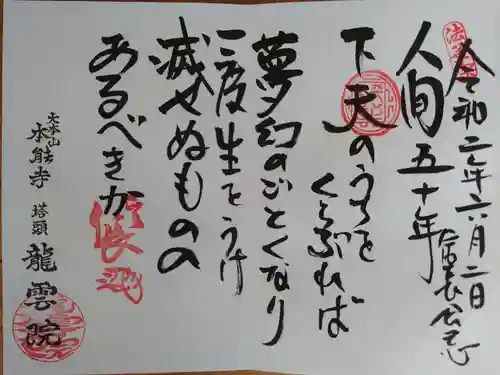 令和二年六月二日
信長公忌
人間五十年
下天のうちを
くらぶれば
夢幻のごとくなり
一度生をうけ
滅せぬものの
あるべきか
信長
大本山
本能寺
塔頭
龍雲院